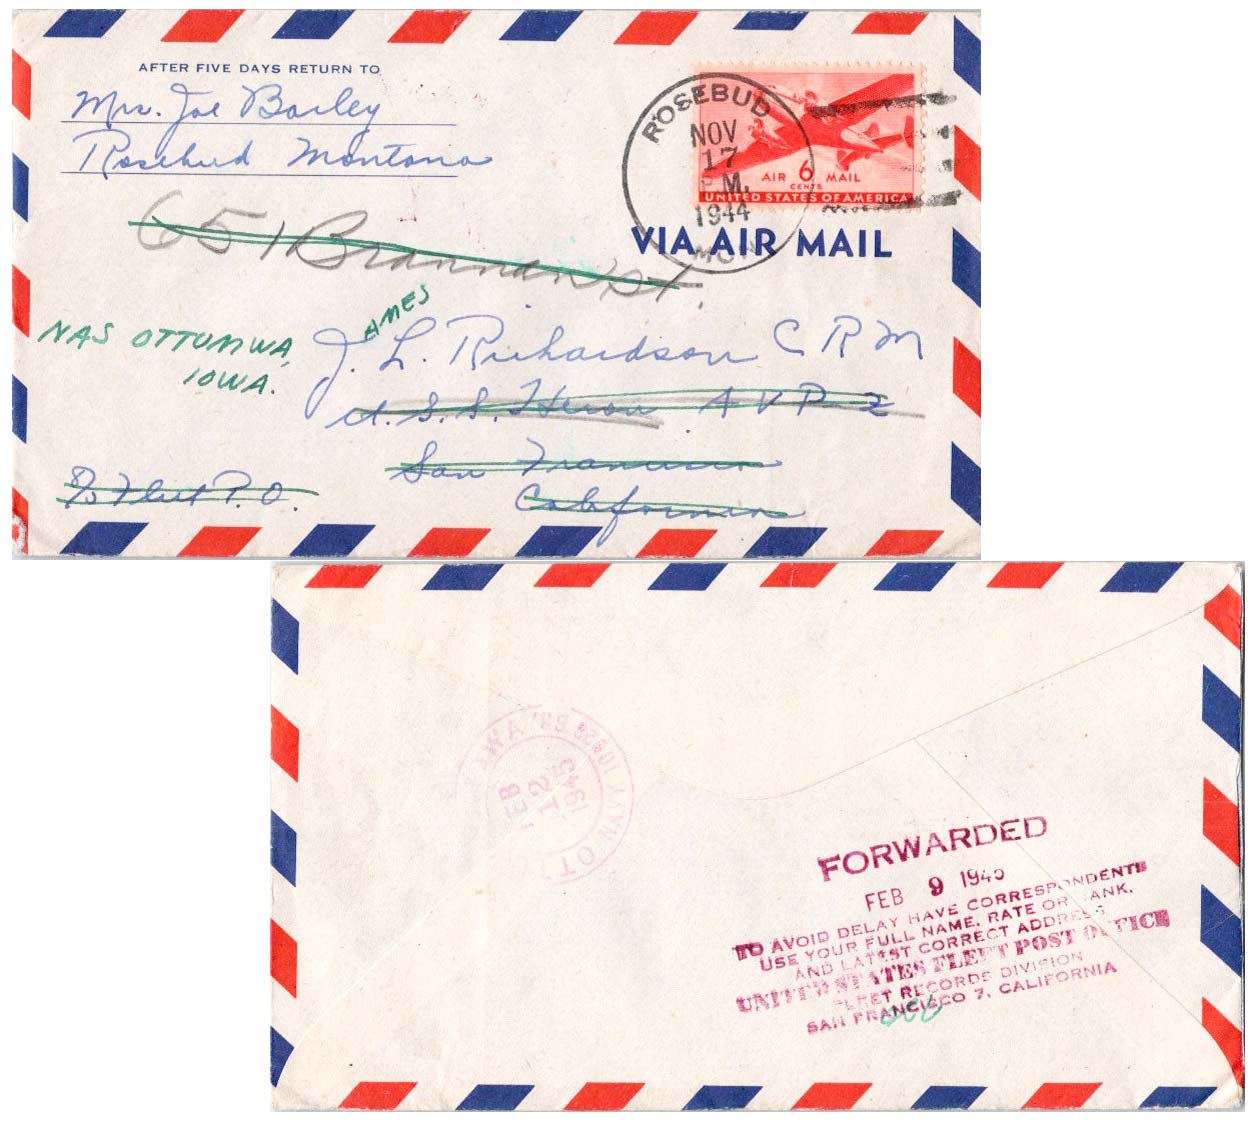 AFTER FIVE DAYS RETURN TO
Mrs. Joe Barley
Rosebud Montana
ROSEBUD
NOV
17
P.M.
1944
MON
AIR 6 MAIL
CENTS
UNITED STATES OF AMERICA
VIA AIR MAIL
651 Brannan St.
NAS OTTUMWA,
IOWA.
AMES
J. L. Richardson CRM
U.S.S. Heron AVP-2
San Francisco
California
℅ Fleet P.O.
NAVY 10626 BR.
FEB
12
1945
FORWARDED
FEB 9 1945
TO AVOID DELAY HAVE CORRESPONDENTS
USE YOUR FULL NAME, RATE OR RANK,
AND LATEST CORRECT ADDRESS
UNITED STATES FLEET POST OFFICE
FLEET RECORDS DIVISION
SAN FRANCISCO 7, CALIFORNIA